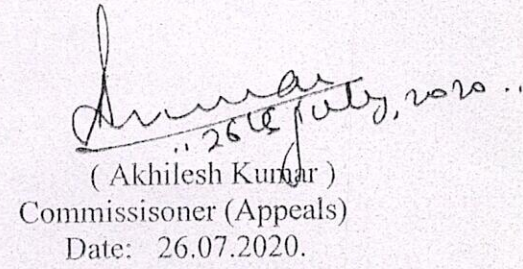 26th July, 2020..
( Akhilesh Kumar )
Commissisoner (Appeals)
Date: 26.07.2020.